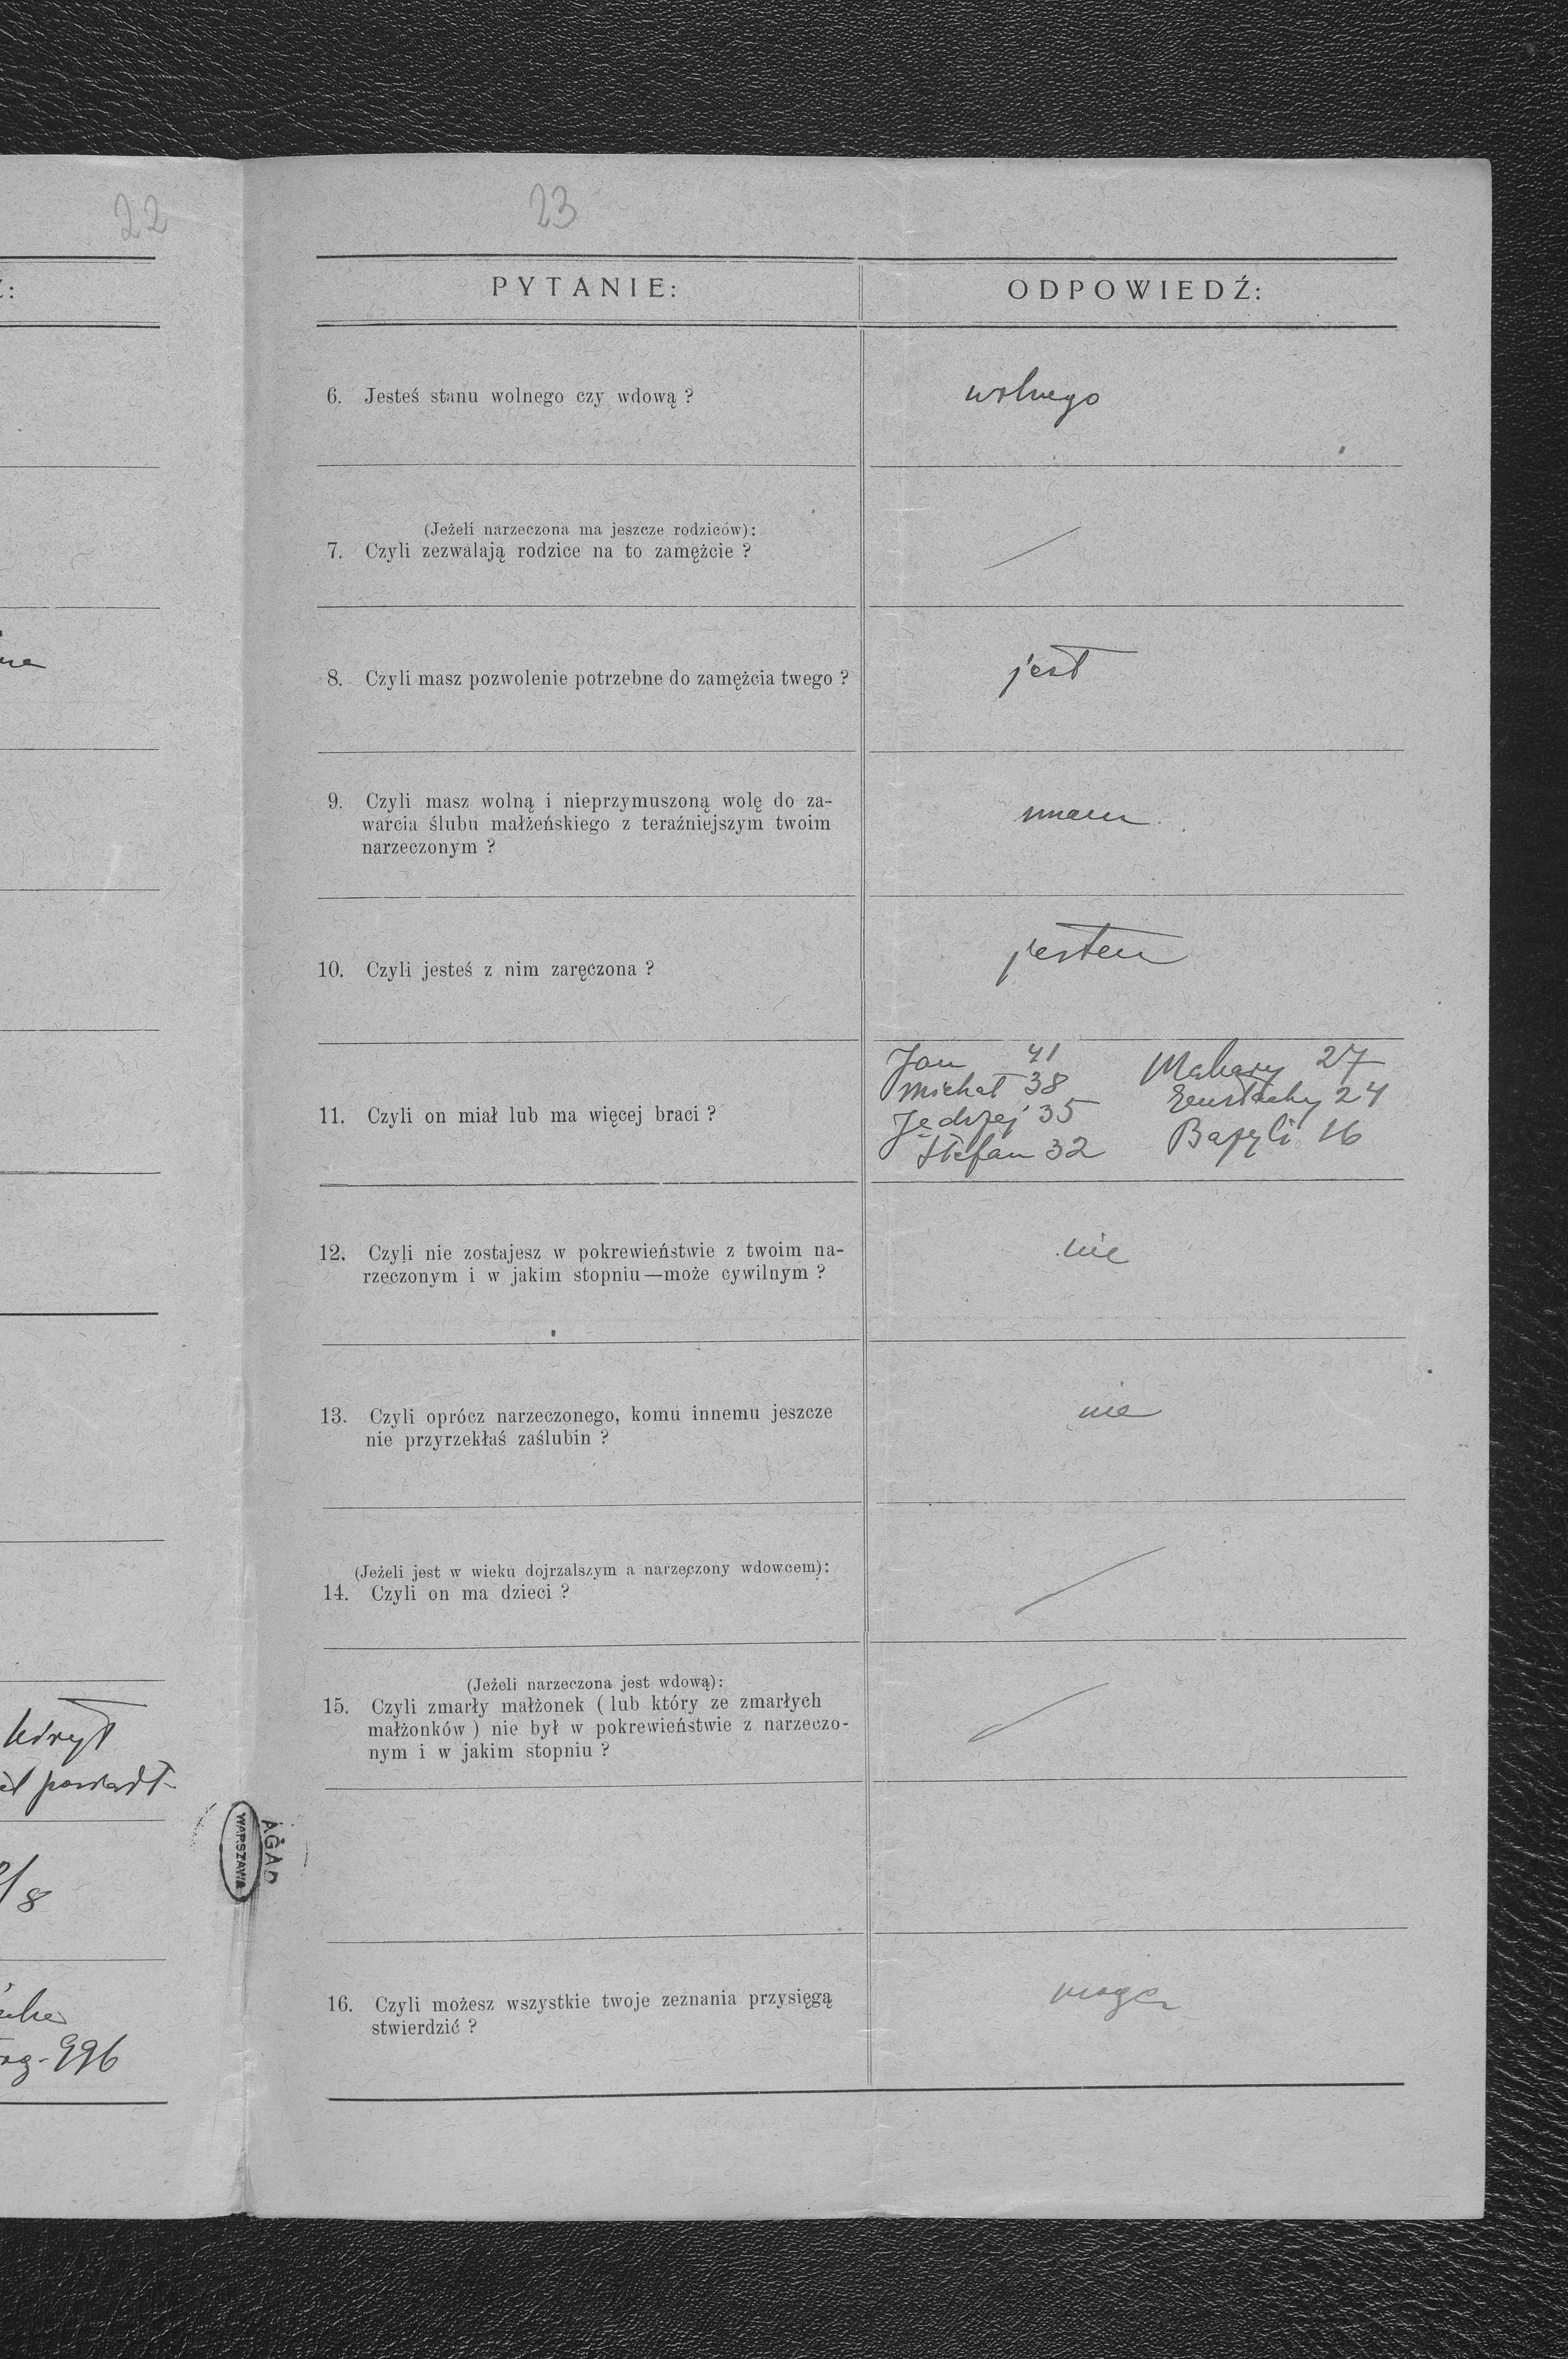 22
23
PYTANIE:
ODPOWIEDŹ:
6. Jesteś stanu wolnego czy wdową ?
wolnego
(Jeżeli narzeczona ma jeszcze rodziców):
7. Czyli zezwalają rodzice na to zamężcie ?
8. Czyli masz pozwolenie potrzebne do zamężcia twego ?
jest
9. Czyli masz wolną i nieprzymuszoną wolę do za-
warcia ślubu małżeńskiego z teraźniejszym twoim
narzeczonym ?
mam
10. Czyli jesteś z nim zaręczona ?
jestem
11. Czyli on miał lub ma więcej braci ?
Jan 41
Michał 38
Jędrzej 35
Stefan 32
Makary 27
Eustachy 24
Bazyli 16
12. Czyli nie zostajesz w pokrewieństwie z twoim na-
rzeczonym i w jakim stopniu—może cywilnym ?
nie
13. Czyli oprócz narzeczonego, komu innemu jeszcze
nie przyrzekłaś zaślubin ?
nie
(Jeżeli jest w wieku dojrzalszym a narzeczony wdowcem):
14. Czyli on ma dzieci ?
(Jeżeli narzeczona jest wdową):
15. Czyli zmarły małżonek ( lub który ze zmarłych
małżonków ) nie był w pokrewieństwie z narzeczo-
nym i w jakim stopniu ?
AGAD
WARSZAWA
16. Czyli możesz wszystkie twoje zeznania przysięgą
stwierdzić ?
mogę
/8
996